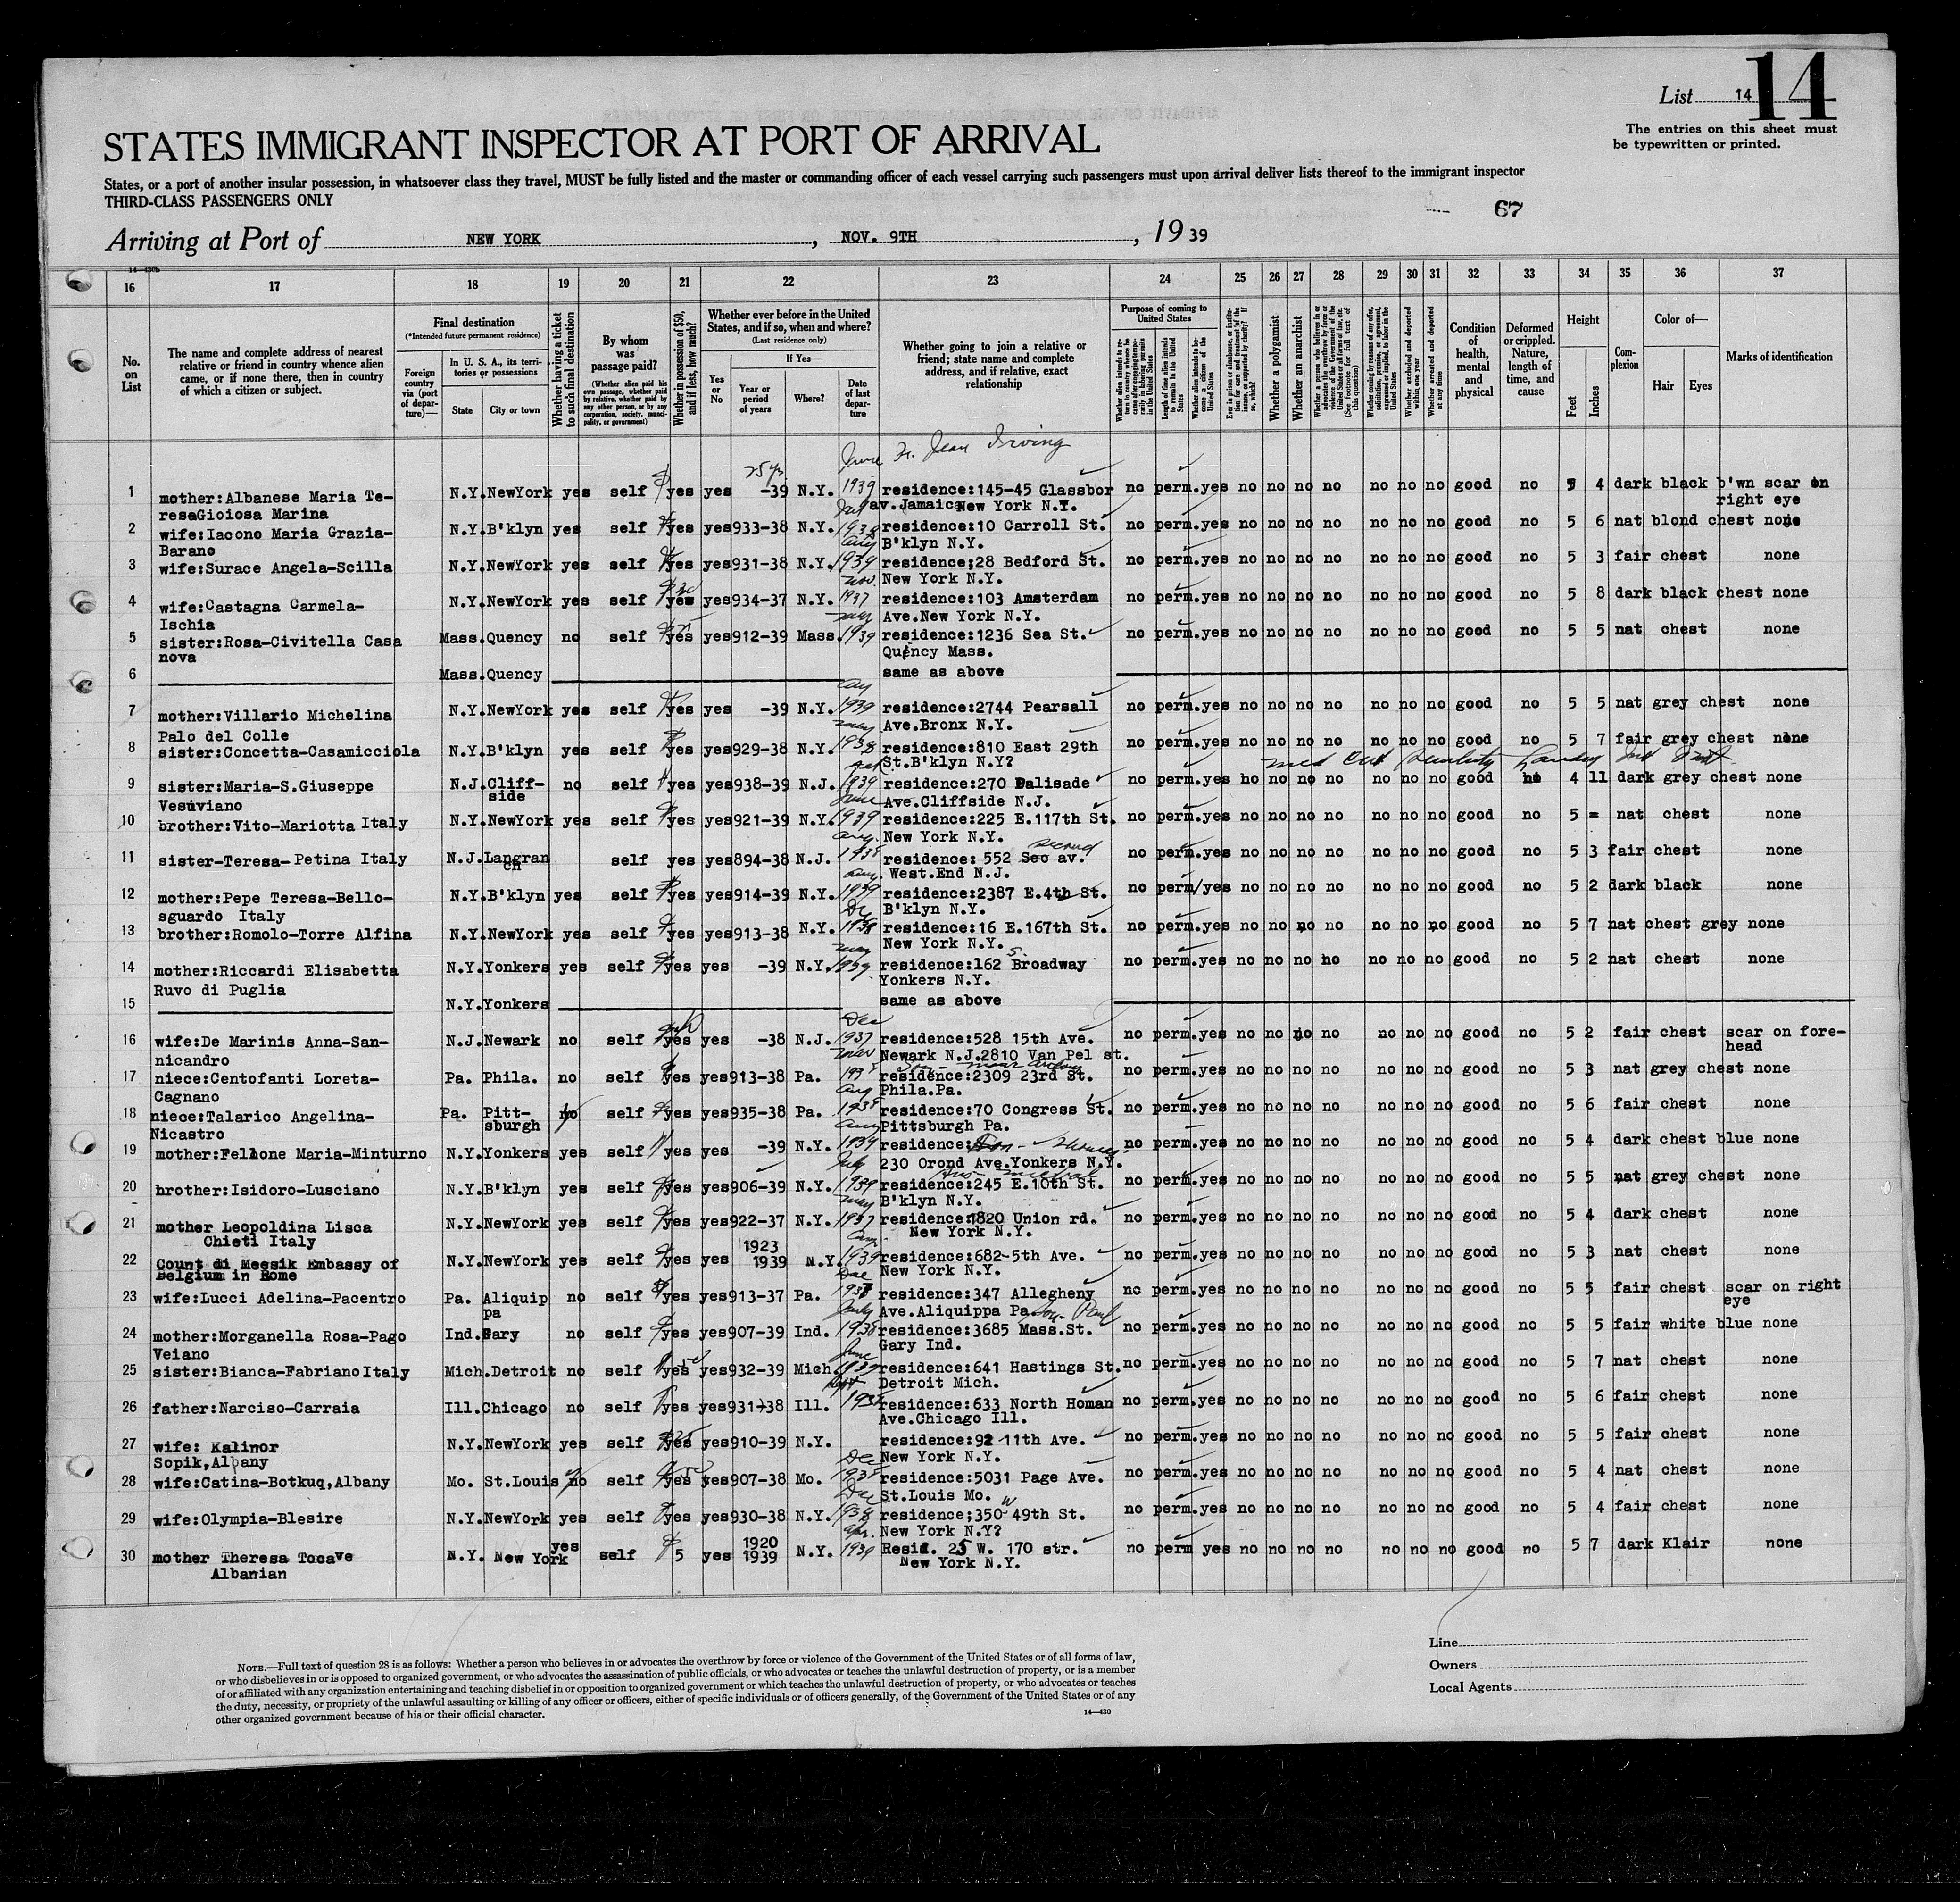 List 14 14
The entries on this sheet must
be typewritten or printed.
STATES IMMIGRANT INSPECTOR AT PORT OF ARRIVAL
States, or a port of another insular possession, in whatsoever class they travel, MUST be fully listed and the master or commanding officer of each vessel carrying such passengers must upon arrival deliver lists thereof to the immigrant inspector
THIRD-CLASS PASSENGERS ONLY
67
Arriving at Port of NEW YORK, NOV. 9TH, 1939
16 17 18 19 20 21 22 23 24 25 26 27 28 29 30 31 32 33 34 35 36 37
No. on List
The name and complete address of nearest relative or friend in country whence alien came, or if none there, then in country of which a citizen or subject.
Final destination
(*Intended future permanent residence)
Foreign country via (port of departure)—
In U. S. A., its territories or possessions
State City or town
Whether having a ticket to such final destination
By whom was passage paid?
(Whether alien paid his own passage, whether paid by relative, whether paid by any other person, or by any corporation, society, municipality, or government)
Whether in possession of $50, and if less, how much?
Whether ever before in the United States, and if so, when and where?
(Last residence only)
Yes or No
If Yes—
Year or period of years
Where?
Date of last departure
Whether going to join a relative or friend; state name and complete address, and if relative, exact relationship
Purpose of coming to United States
Whether a polygamist
Whether an anarchist
Whether excluded and deported within one year
Whether arrested and deported at any time
Condition of health, mental and physical
Deformed or crippled. Nature, length of time, and cause
Height
Feet Inches
Complexion
Color of—
Hair Eyes
Marks of identification
June Jean Irving
25 yrs
1 mother:Albanese Maria Te- N.Y. NewYork yes self yes yes -39 N.Y. 1939 residence:145-45 Glassbor no perm. yes no no no no no no no good no 5 4 dark black b'wn scar on
reseGioiosa Marina av.Jamaica New York N.Y. right eye
2 wife:Iacono Maria Grazia- N.Y. B'klyn yes self yes yes 933-38 N.Y. residence:10 Carroll St. no perm. yes no no no no no no no good no 5 6 nat blond chest none
Barano B'klyn N.Y.
3 wife:Surace Angela-Scilla N.Y. NewYork yes self yes yes 931-38 N.Y. 1939 residence;28 Bedford St. no perm. yes no no no no no no no good no 5 3 fair chest none
New York N.Y.
4 wife:Castagna Carmela- N.Y. NewYork yes self yes yes 934-37 N.Y. 1937 residence:103 Amsterdam no perm. yes no no no no no no no good no 5 8 dark black chest none
Ischia Ave.New York N.Y.
5 sister:Rosa-Civitella Casa Mass. Quency no self yes yes 912-39 Mass. 1939 residence:1236 Sea St. no perm. yes no no no no no no no good no 5 5 nat chest none
nova Quency Mass.
6 Mass. Quency same as above
7 mother:Villario Michelina N.Y. NewYork yes self yes yes -39 N.Y. 1939 residence:2744 Pearsall no perm. yes no no no no no no no good no 5 5 nat grey chest none
Palo del Colle Ave.Bronx N.Y.
8 sister:Concetta-Casamicciola N.Y. B'klyn yes self yes yes 929-38 N.Y. 1938 residence:810 East 29th no perm. yes no no no no no no no good no 5 7 fair grey chest none
St.B'klyn N.Y?
9 sister:Maria-S.Giuseppe N.J. Cliff- no self yes yes 938-39 N.J. 1939 residence:270 Palisade no perm. yes no no no no no no no good no 4 11 dark grey chest none
Vesuviano side Ave.Cliffside N.J.
10 brother:Vito-Mariotta Italy N.Y. NewYork yes self yes yes 921-39 N.Y. 1939 residence:225 E.117th St. no perm. yes no no no no no no no good no 5 = nat chest none
New York N.Y.
11 sister-Teresa-Petina Italy N.J. Langran self yes yes 894-38 N.J. 1938 residence: 552 Sec av. second no perm. yes no no no no no no no good no 5 3 fair chest none
ch West.End N.J.
12 mother:Pepe Teresa-Bello- N.Y. B'klyn yes self yes yes 914-39 N.Y. 1939 residence:2387 E.4th St. no perm/yes no no no no no no no good no 5 2 dark black none
sguardo Italy B'klyn N.Y.
13 brother:Romolo-Torre Alfina N.Y. NewYork yes self yes yes 913-38 N.Y. 1938 residence:16 E.167th St. no perm. yes no no no no no no no good no 5 7 nat chest grey none
New York N.Y.
14 mother:Riccardi Elisabetta N.Y. Yonkers yes self yes yes -39 N.Y. 1939 residence:162 S. Broadway no perm. yes no no no no no no no good no 5 2 nat chest none
Ruvo di Puglia Yonkers N.Y.
15 N.Y. Yonkers same as above
16 wife:De Marinis Anna-San- N.J. Newark no self yes yes -38 N.J. Dec 1937 residence:528 15th Ave. no perm. yes no no no no no no no good no 5 2 fair chest scar on fore-
nicandro Newark N.J.2810 Van Pel st. head
17 niece:Centofanti Loreta- Pa. Phila. no self yes yes 913-38 Pa. residence:2309 23rd St. no perm. yes no no no no no no no good no 5 3 nat grey chest none
Cagnano Phila.Pa.
18 niece:Talarico Angelina- Pa. Pitt- no self yes yes 935-38 Pa. 1938 residence:70 Congress St. no perm. yes no no no no no no no good no 5 6 fair chest none
Nicastro sburgh Pittsburgh Pa.
19 mother:Fellone Maria-Minturno N.Y. Yonkers yes self yes yes -39 N.Y. 1939 residence: no perm. yes no no no no no no no good no 5 4 dark chest blue none
230 Orond Ave.Yonkers N.Y.
20 brother:Isidoro-Lusciano N.Y. B'klyn yes self yes yes 906-39 N.Y. July 1939 residence:245 E.10th St. no perm. yes no no no no no no no good no 5 5 nat grey chest none
B'klyn N.Y.
21 mother Leopoldina Lisca N.Y. NewYork yes self yes yes 922-37 N.Y. May 1937 residence:1820 Union rd. no perm. yes no no no no no no no good no 5 4 dark chest none
Chieti Italy New York N.Y.
22 Count di Meesik Embassy of N.Y. NewYork yes self yes yes 1923 1939 N.Y. 1939 residence:682-5th Ave. no perm. yes no no no no no no no good no 5 3 nat chest none
Belgium in Rome New York N.Y.
23 wife:Lucci Adelina-Pacentro Pa. Aliquip no self yes yes 913-37 Pa. residence:347 Allegheny no perm. yes no no no no no no no good no 5 5 fair chest scar on right
pa Ave.Aliquippa Pa. eye
24 mother:Morganella Rosa-Pago Ind. Gary no self yes yes 907-39 Ind. July 1938 residence:3685 Mass.St. no perm. yes no no no no no no no good no 5 5 fair white blue none
Veiano Gary Ind.
25 sister:Bianca-Fabriano Italy Mich. Detroit no self yes yes 932-39 Mich June residence:641 Hastings St. no perm. yes no no no no no no no good no 5 7 nat chest none
Detroit Mich.
26 father:Narciso-Carraia Ill. Chicago no self yes yes 931-38 Ill. Sept residence:633 North Homan no perm. yes no no no no no no no good no 5 6 fair chest none
Ave.Chicago Ill.
27 wife: Kalinor N.Y. NewYork yes self yes yes 910-39 N.Y. residence:92-11th Ave. no perm. yes no no no no no no no good no 5 5 fair chest none
Sopik,Albany New York N.Y.
28 wife:Catina-Botkuq,Albany Mo. St.Louis no self yes yes 907-38 Mo. Dec 1938 residence:5031 Page Ave. no perm. yes no no no no no no no good no 5 4 nat chest none
St.Louis Mo.
29 wife:Olympia-Blesire N.Y. NewYork yes self yes yes 930-38 N.Y. Dec 1938 residence;350 W 49th St. no perm. yes no no no no no no no good no 5 4 fair chest none
New York N.Y?
30 mother Theresa Tocave N.Y. New York yes self $ 5 yes 1920 1939 N.Y. Apr. 1939 Resid. 25 W. 170 str. no perm yes no no no no no no no good no 5 7 dark Klair none
Albanian New York N.Y.
Line
Owners
Local Agents
NOTE.—Full text of question 28 is as follows: Whether a person who believes in or advocates the overthrow by force or violence of the Government of the United States or of all forms of law,
or who disbelieves in or is opposed to organized government, or who advocates the assassination of public officials, or who advocates or teaches the unlawful destruction of property, or is a member
of or affiliated with any organization entertaining and teaching disbelief in or opposition to organized government or which teaches the unlawful destruction of property, or who advocates or teaches
the duty, necessity, or propriety of the unlawful assaulting or killing of any officer or officers, either of specific individuals or of officers generally, of the Government of the United States or of any
other organized government because of his or their official character.
14—430